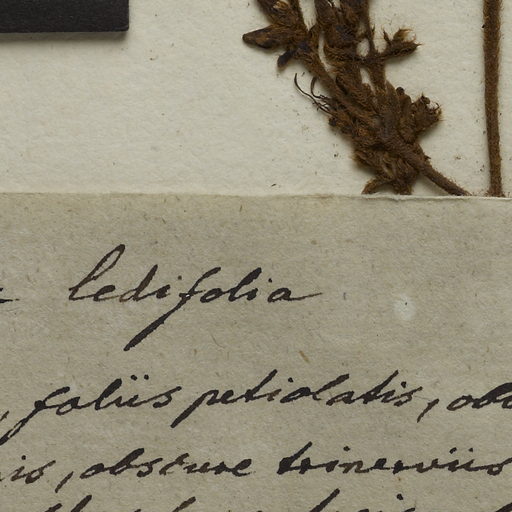 ledifolia
, foliis petiolatis, obo
is, obscure trinerviis